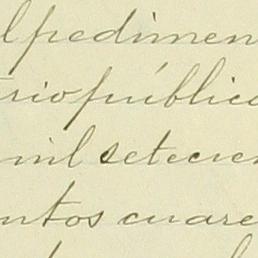 l pedimen
rio público
mil setecien
ntos cuare